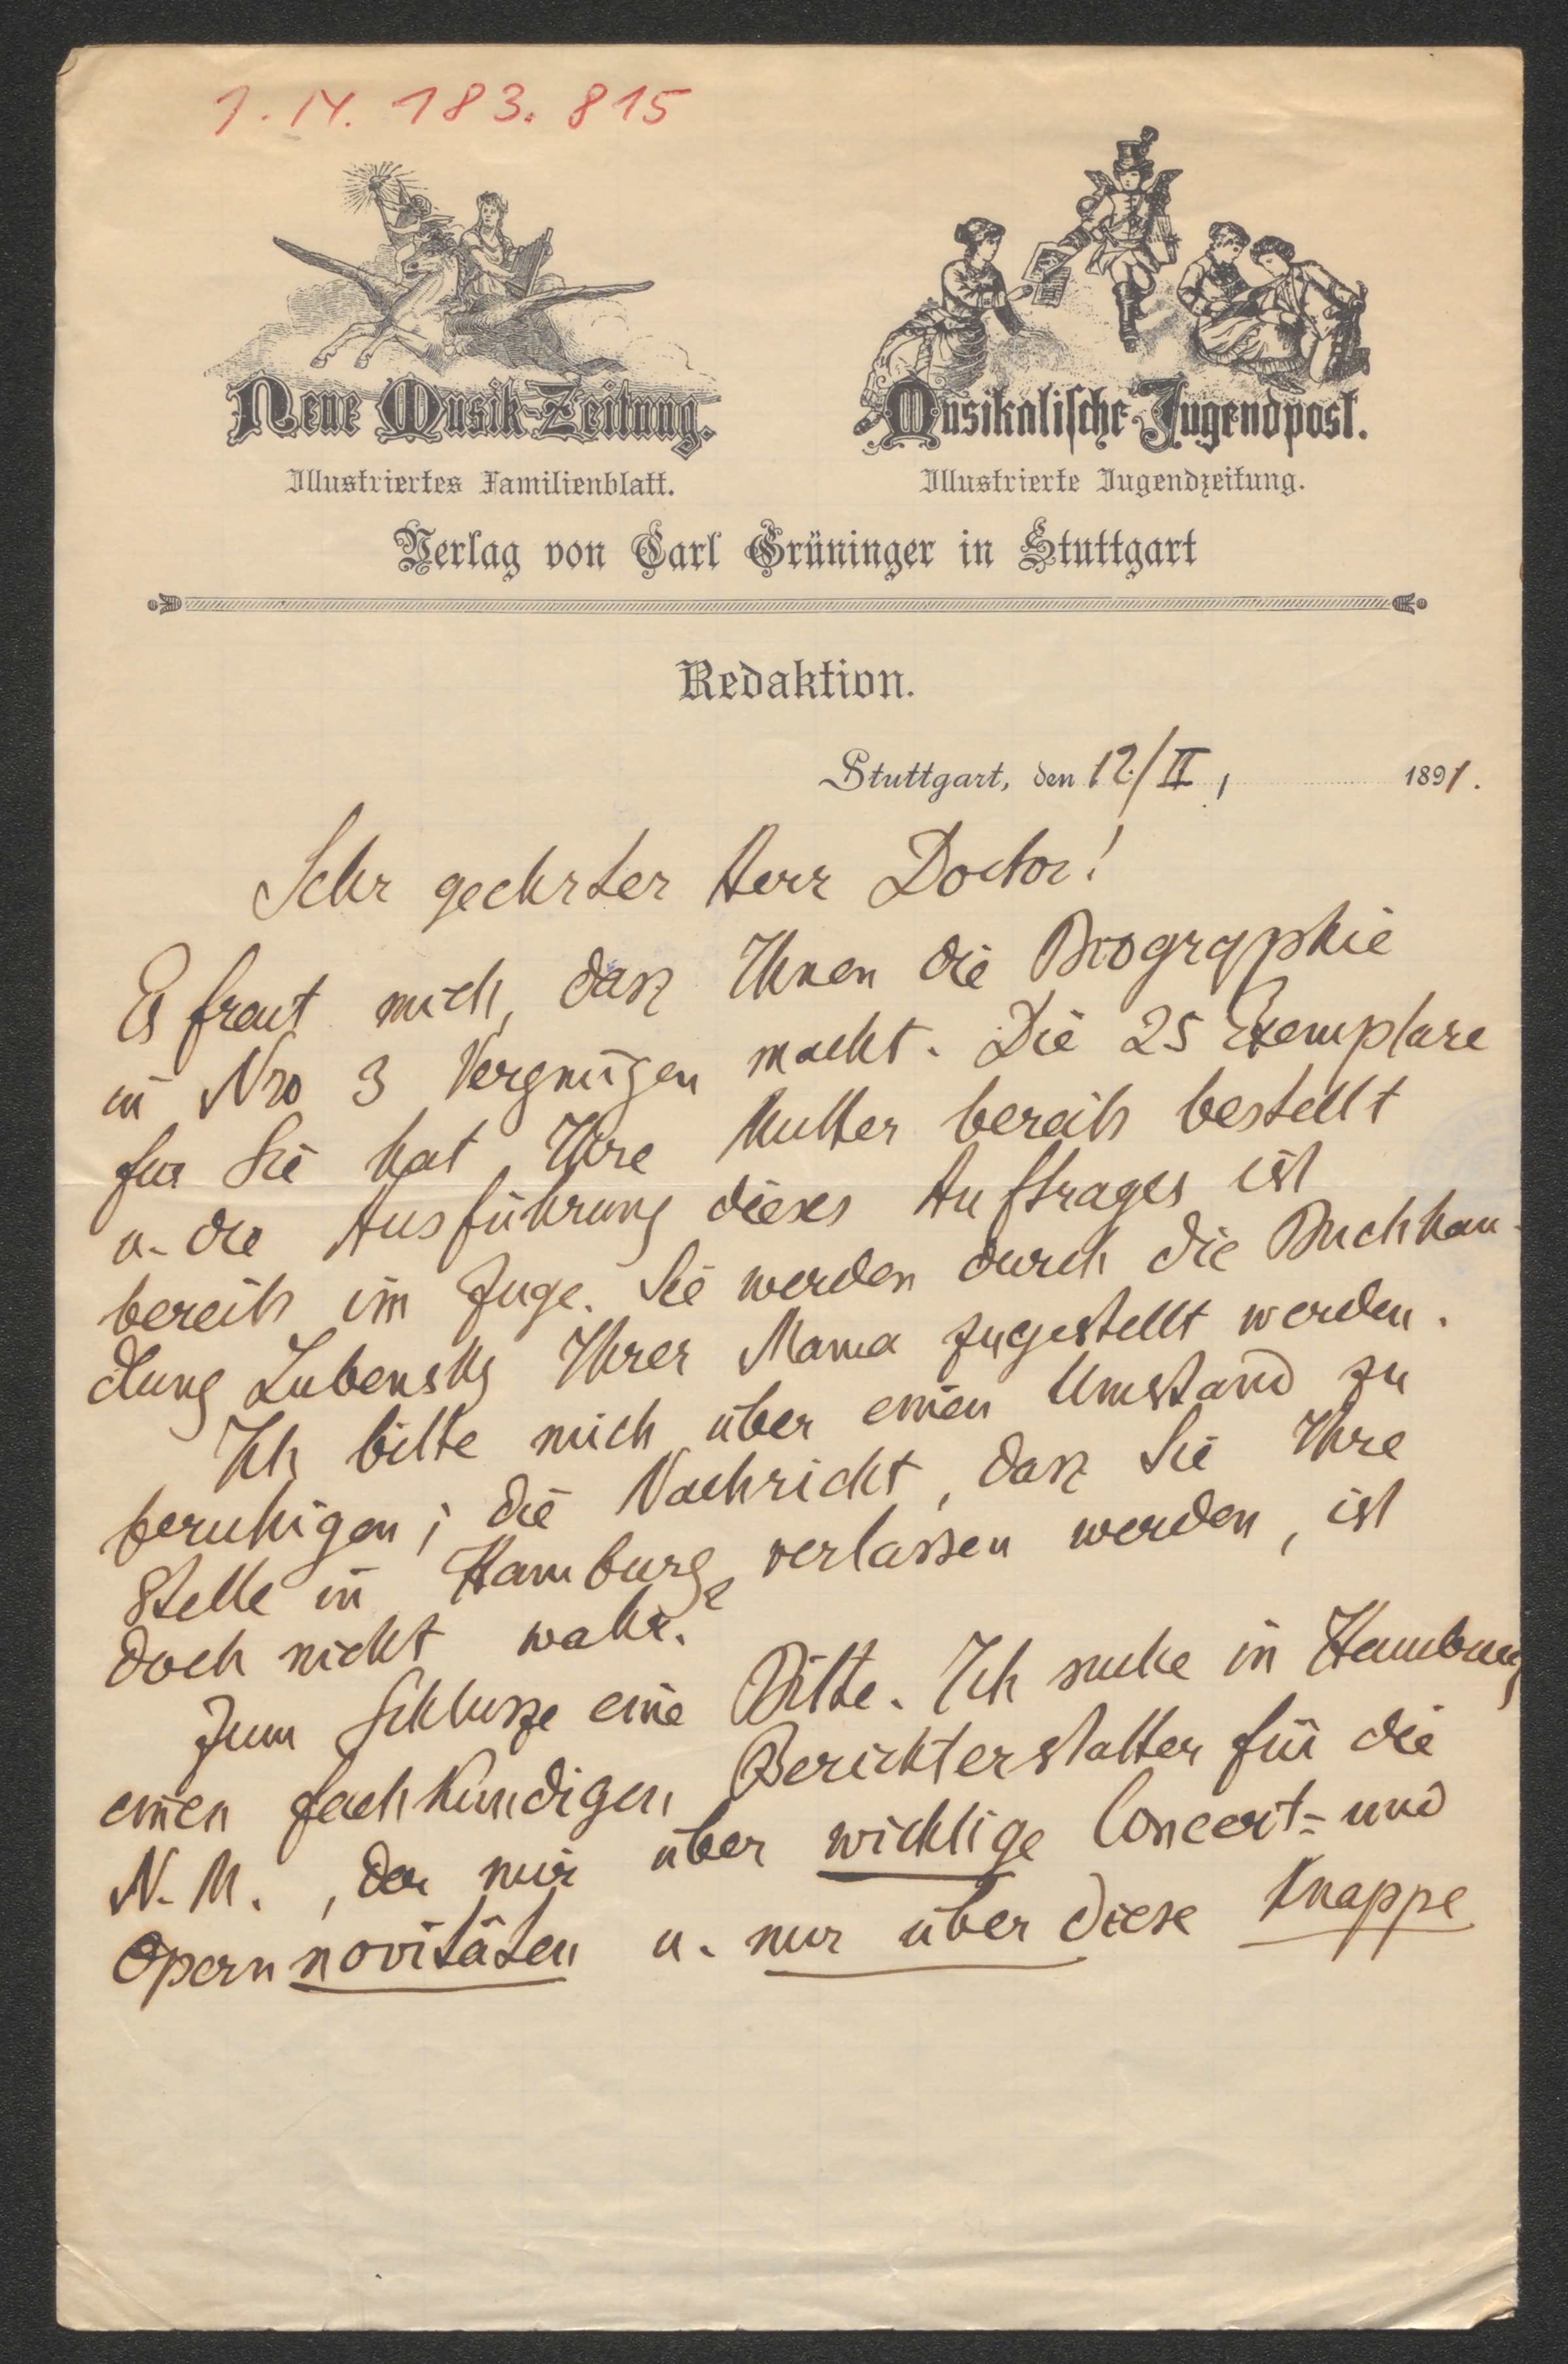 J. N. 183.815
Neue Musik-Zeitung.
Illustriertes Familienblatt.
Musikalische Jugendpost.
Illustrierte Jugendzeitung.
Verlag von Carl Grüninger in Stuttgart
Redaktion.
Stuttgart, den 12./II, 1891.
Sehr geehrter Herr Doctor!
Es freut mich, dasz Ihnen die Biographie
in Nro 3 Vergnügen macht. Die 25 Exemplare
für Sie hat Ihre Mutter bereits bestellt
u. die Ausführung dieses Auftrages ist
bereits im Zuge. Sie werden durch die Buchhan-
dlung Lubensky Ihrer Mama zugestellt werden.
Ich bitte mich über einen Umstand zu
beruhigen; die Nachricht, dasz Sie Ihre
Stelle in Hamburg verlassen werden, ist
doch nicht wahr?
Zum Schlusze eine Bitte. Ich suche in Hamburg
einen fachkundigen Berichterstatter für die
N. M. , der mir über wichtige Concert- und
Opernnovitäten u. nur über diese knappe